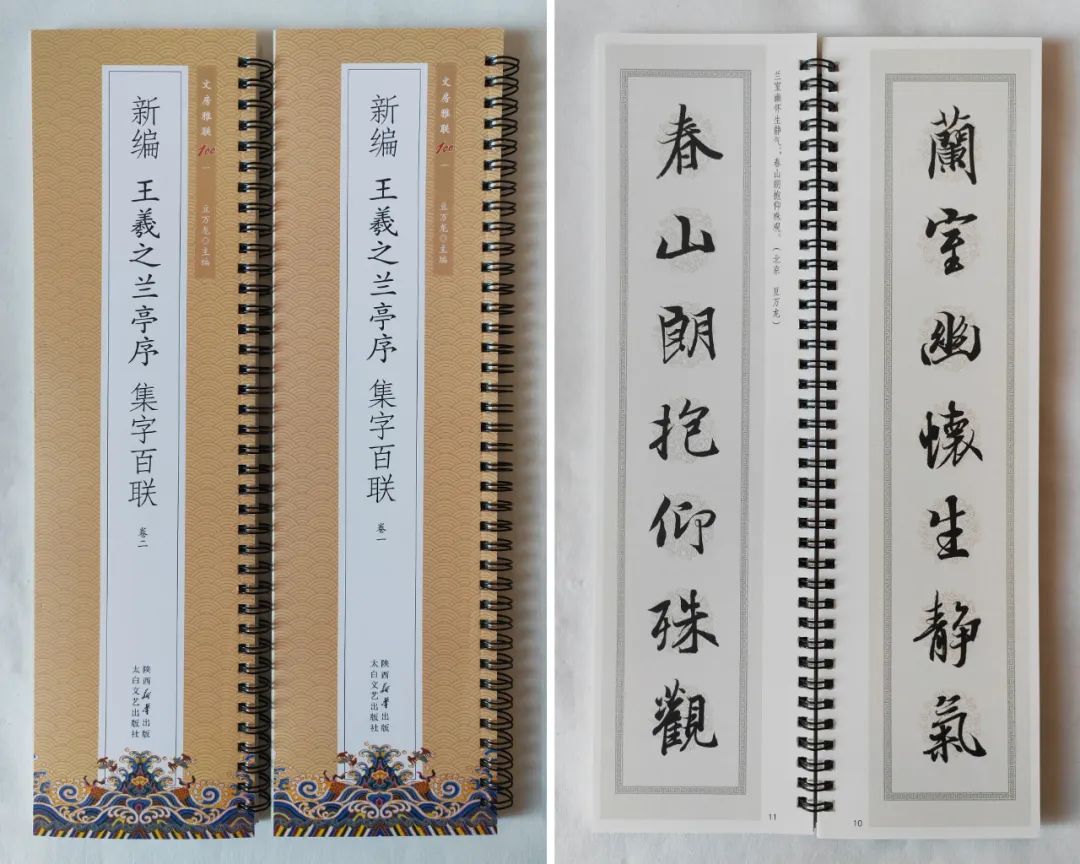 文房雅联100 一
豆万龙◎主编
新编 王羲之兰亭序 集字百联 卷二
陕西新华出版
太白文艺出版社
文房雅联100 一
豆万龙◎主编
新编 王羲之兰亭序 集字百联 卷一
陕西新华出版
太白文艺出版社
蘭室幽懷生静氣
10
兰室幽怀生静气；春山朗抱仰殊观。（北京 豆万龙）
春山朗抱仰殊觀
11